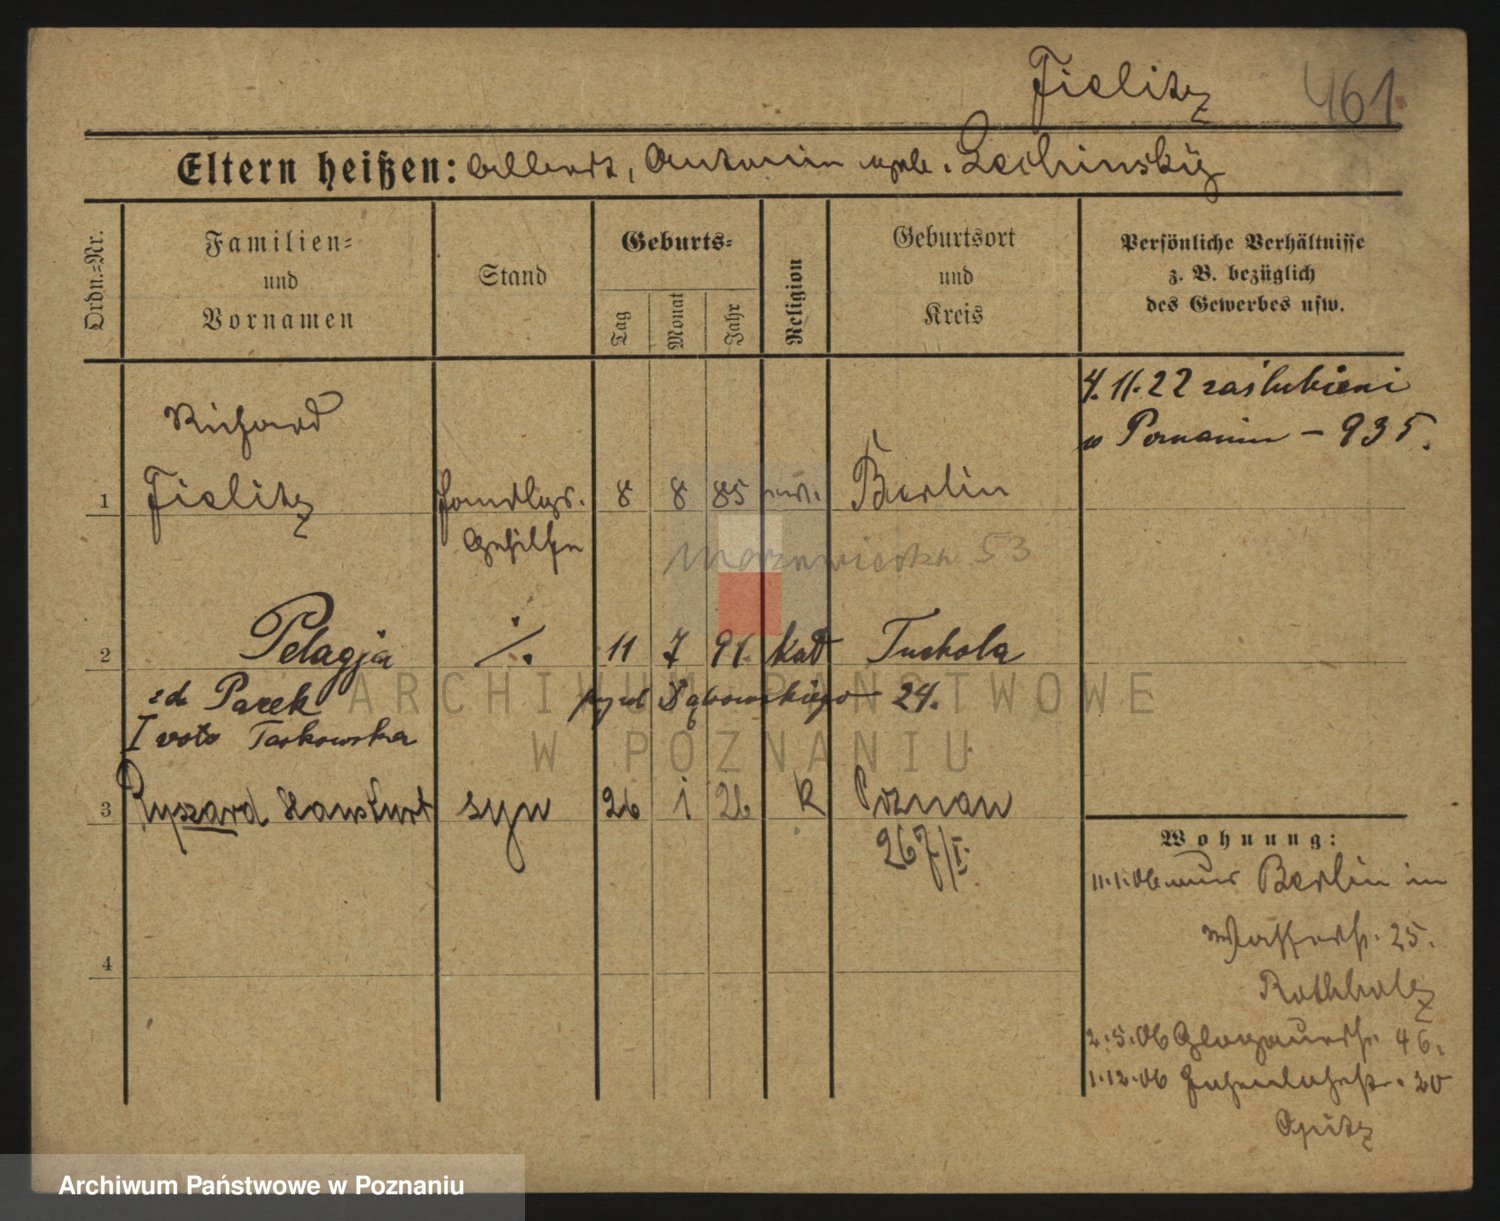 Fielitz 461
Eltern heißen: Albert, Antonin geb. Lechinsky
Ordn.-Nr.
Familien-
und
Vornamen
Stand
Geburts-
Tag
Monat
Jahr
Religion
Geburtsort
und
Kreis
Persönliche Verhältnisse
z. B. bezüglich
des Gewerbes usw.
4.11.22 zaślubieni
w Poznaniu - 935.
Richard
1 Fielitz Handlgs. 8 8 85 Berlin
Gehilfe
53
2 Pelagja ./. 11 7 91 kat Tuchola
zd Pazek Dąbrowskiego 24.
I voto Taskowska
3 Ryszard Hans Kurt syn 26 1 26 R Poznan
267/I.
4
Wohnung:
11.1.06 aus Berlin in
Wasserstr. 25.
Rothholz
2.5.06 Glogauerstr. 46.
1.12.06 20
Opitz
ARCHIWUM PAŃSTWOWE
W POZNANIU
Archiwum Państwowe w Poznaniu